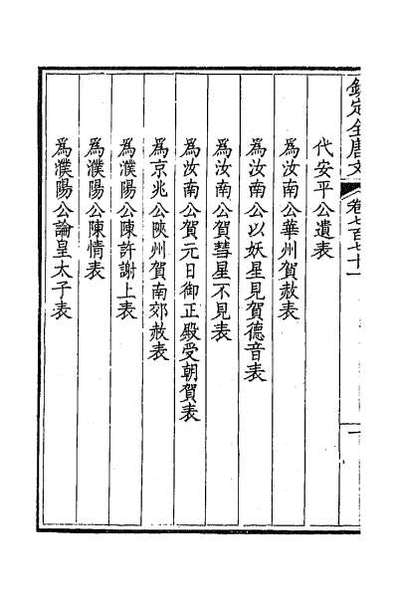 欽定全唐文 卷七百七十一 一
代安平公遺表
為汝南公華州賀赦表
為汝南公以妖星見賀德音表
為汝南公賀彗星不見表
為汝南公賀元日御正殿受朝賀表
為京兆公陝州賀南郊赦表
為濮陽公陳許謝上表
為濮陽公陳情表
為濮陽公論皇太子表